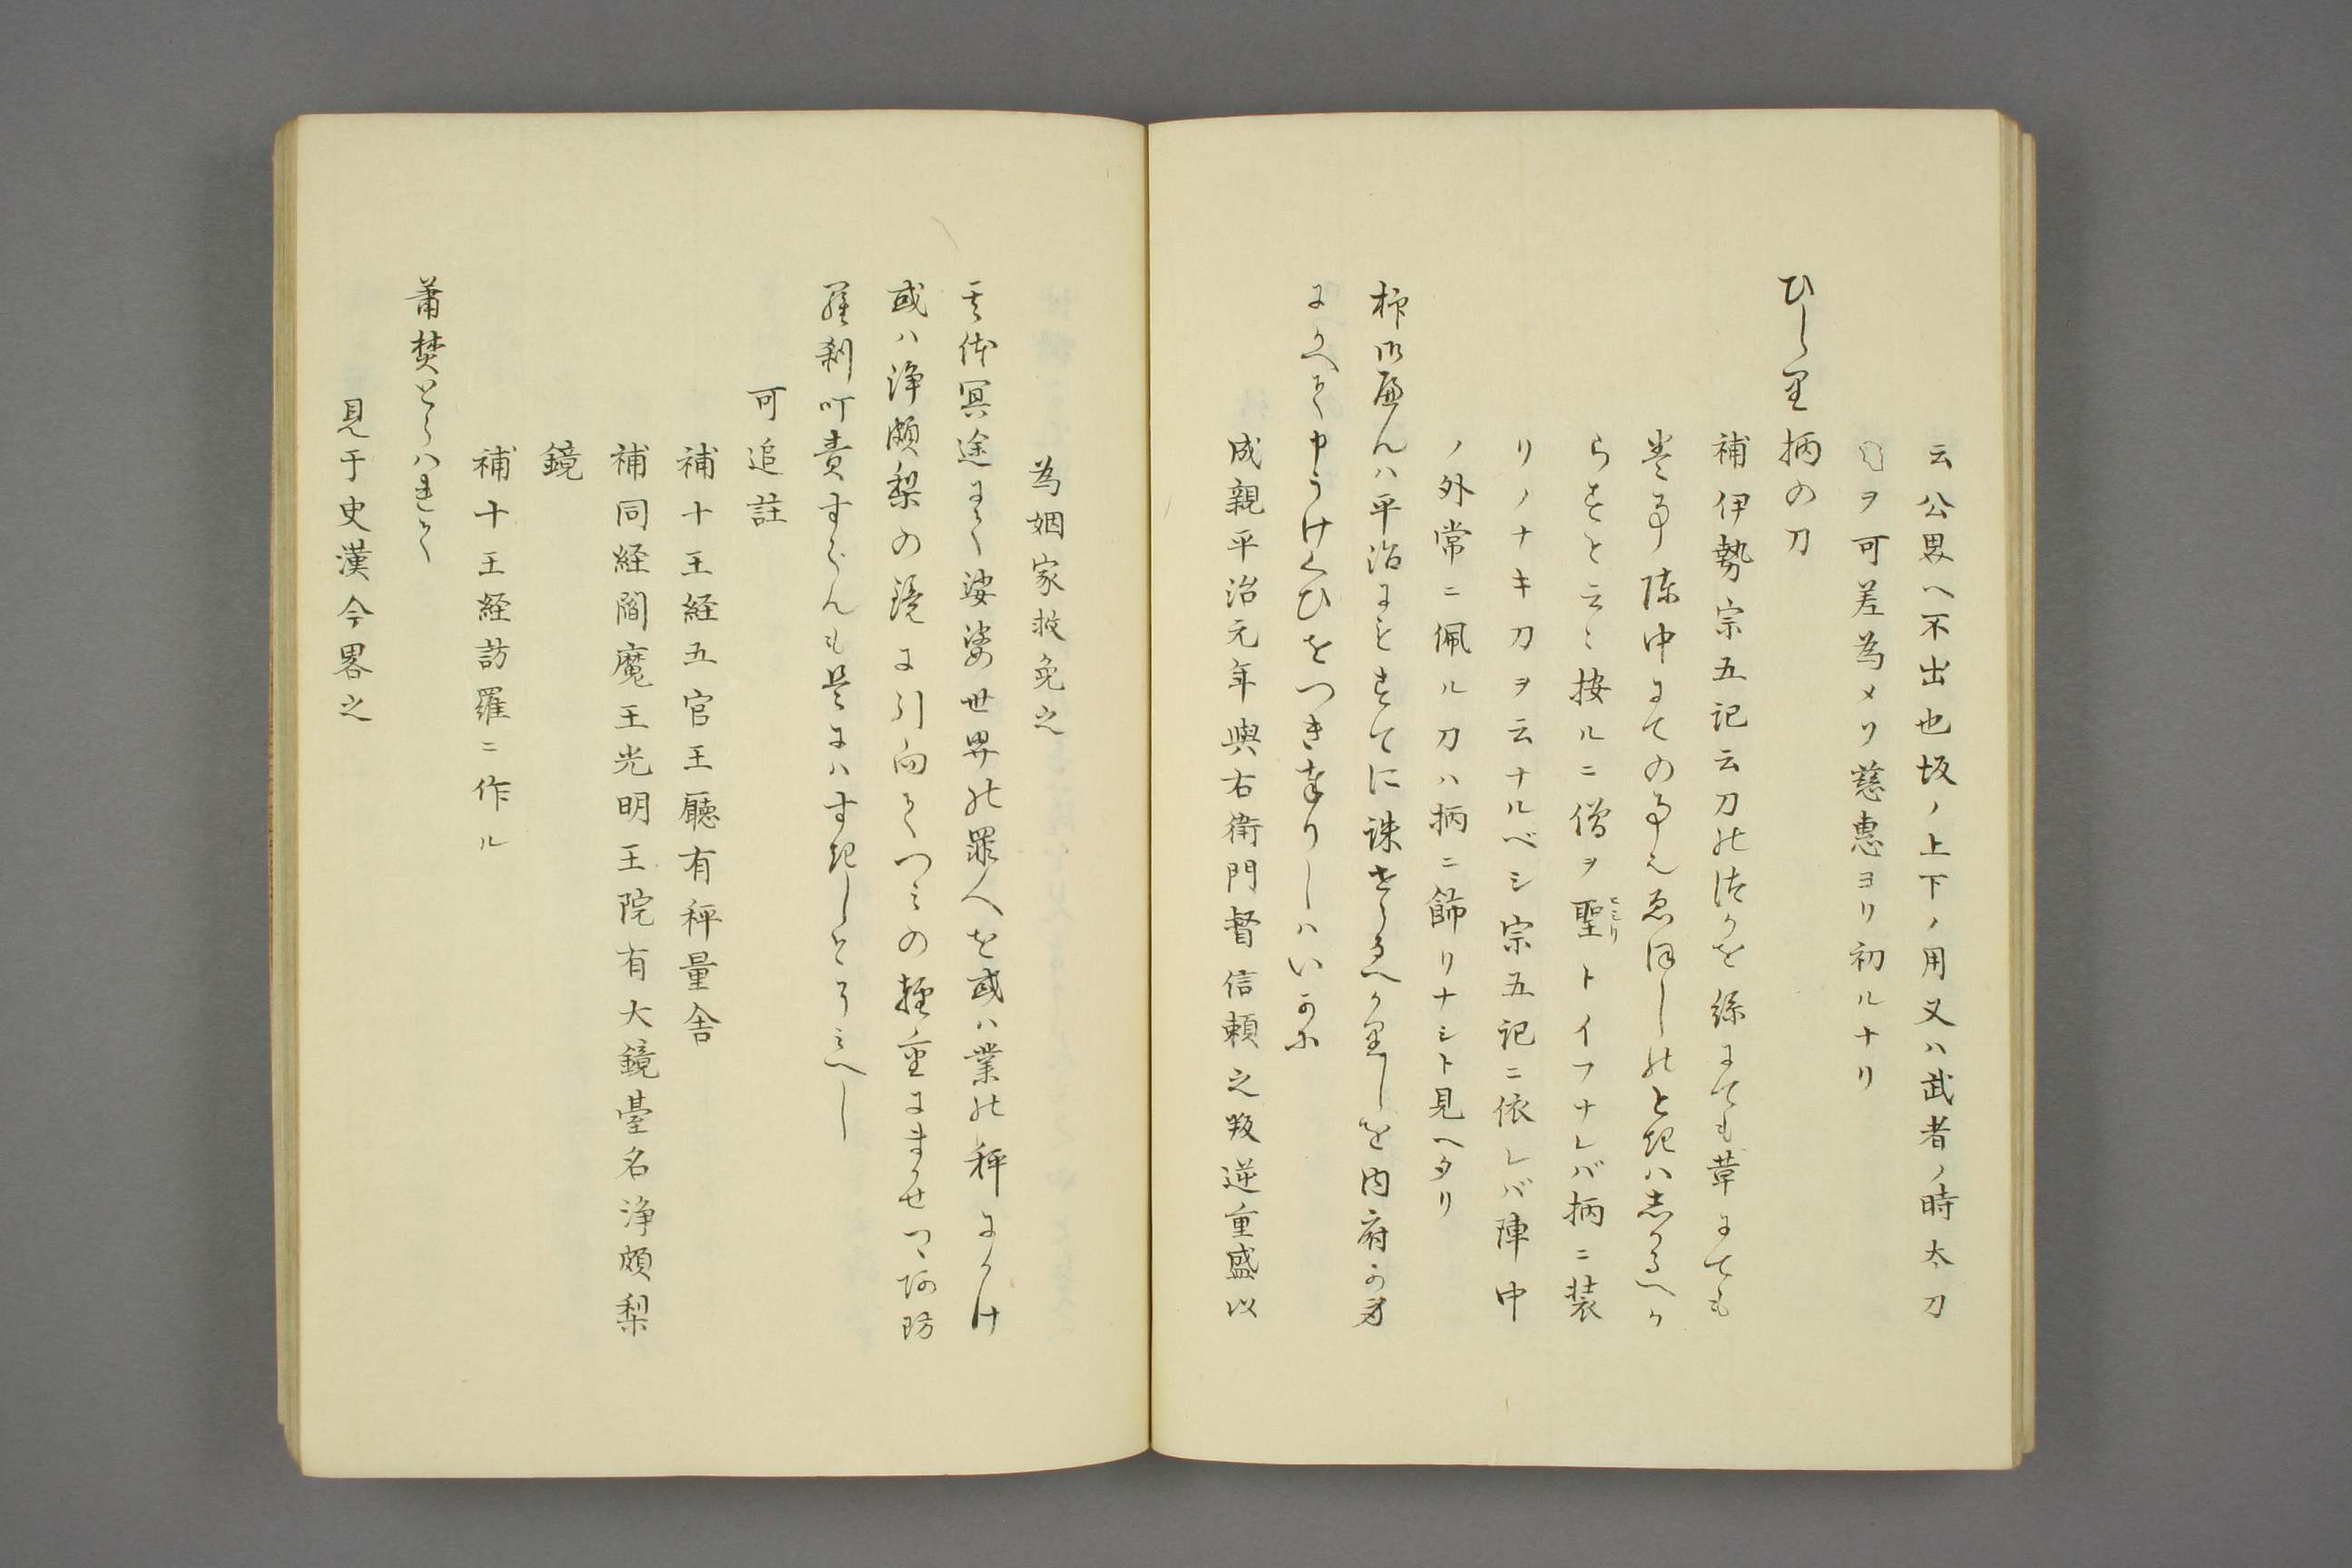 云公界ヘ不出也坂ノ上下ノ用又ハ武者ノ時太刀
ヲ可差為メリ慈恵ヨリ初ルナリ
ひしり柄の刀
補伊勢宗五記云刀のつかを絲にても革にても
巻事陣中にての事也ゑほしのときはしかるへか
らすと云々按ルニ僧ヲ聖トイフナレバ柄ニ装
ヒシリ
リノナキ刀ヲ云ナルベシ宗五記ニ依レバ陣中
ノ外常ニ佩ル刀ハ柄ニ飾リナシト見ヘタリ
抑御へんは平治にもすてに誅せらるへかりしを内府か身
にかへて申うけくひをつき奉りしはいかに
成親平治元年與右衛門督信頼之叛逆重盛以
為姻家救免之
其体冥途にて娑婆世界の罪人を或は業の秤にかけ
或は浄頗梨の鏡に引向てつみの軽重にまかせつゝ阿防
羅刹呵責すらんも是にはすきしとそみへし
可追註
補十王経五官王廳有秤量舎
補同経閻魔王光明王院有大鏡臺名浄頗梨
鏡
補十王経訪羅ニ作ル
蕭樊とらはれて
見于史漢今畧之